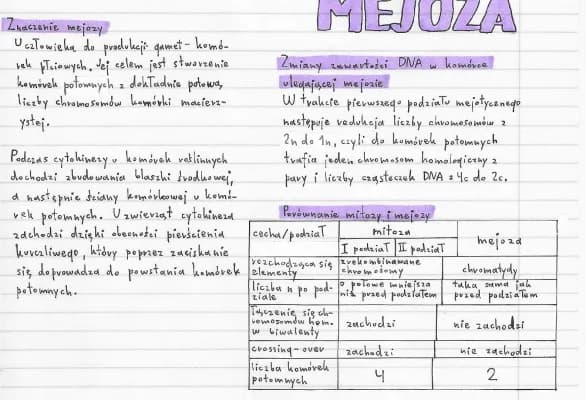 MEJOZA
Znaczenie mejozy
U człowieka do produkcji gamet - komó-
rek płciowych. Jej celem jest stworzenie
komórek potomnych z dokładnie połową
liczby chromosomów komórki macierz-
ystej.
Podczas cytokinezy u komórek roślinnych
dochodzi zbudowania blaszki środkowej,
a następnie ściany komórkowej u komó-
rek potomnych. U zwierząt cytokineza
zachodzi dzięki obecności pierścienia
kurczliwego, który poprzez zaciskanie
się doprowadza do powstania komórek
potomnych.
Zmiany zawartości DNA w komórce
ulegającej mejozie
W trakcie pierwszego podziału mejotycznego
następuje redukcja liczby chromosomów z
2n do 1n, czyli do komórek potomnych
trafia jeden chromosom homologiczny z
pary i liczby cząsteczek DNA z 4c do 2c.
Porównanie mitozy i mejozy
cecha/podział mitoza mejoza
I podział II podział
rozchodzące się elementy zrekombinowane chromosomy chromatydy
liczba n po podziale o połowę mniejsza niż przed podziałem taka sama jak przed podziałem
Łączenie się chromosomów hom. w biwalenty zachodzi nie zachodzi
crossing-over zachodzi nie zachodzi
liczba komórek potomnych 4 2